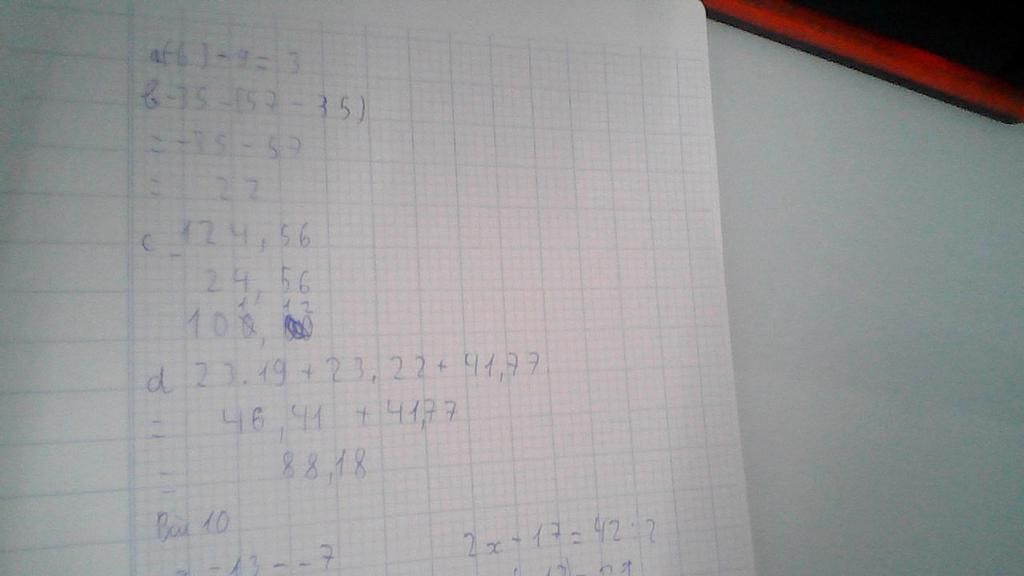 a(-6) - 9 = 3
b -35 - (57 - 35)
= -35 - 57
= 22
c - 124,56
24,56
100,
d 23.19 + 23.22 + 41,77
= 46,41 + 41,77
= 88,18
Bài 10
2x - 17 = 42 : 2
-13 - -7